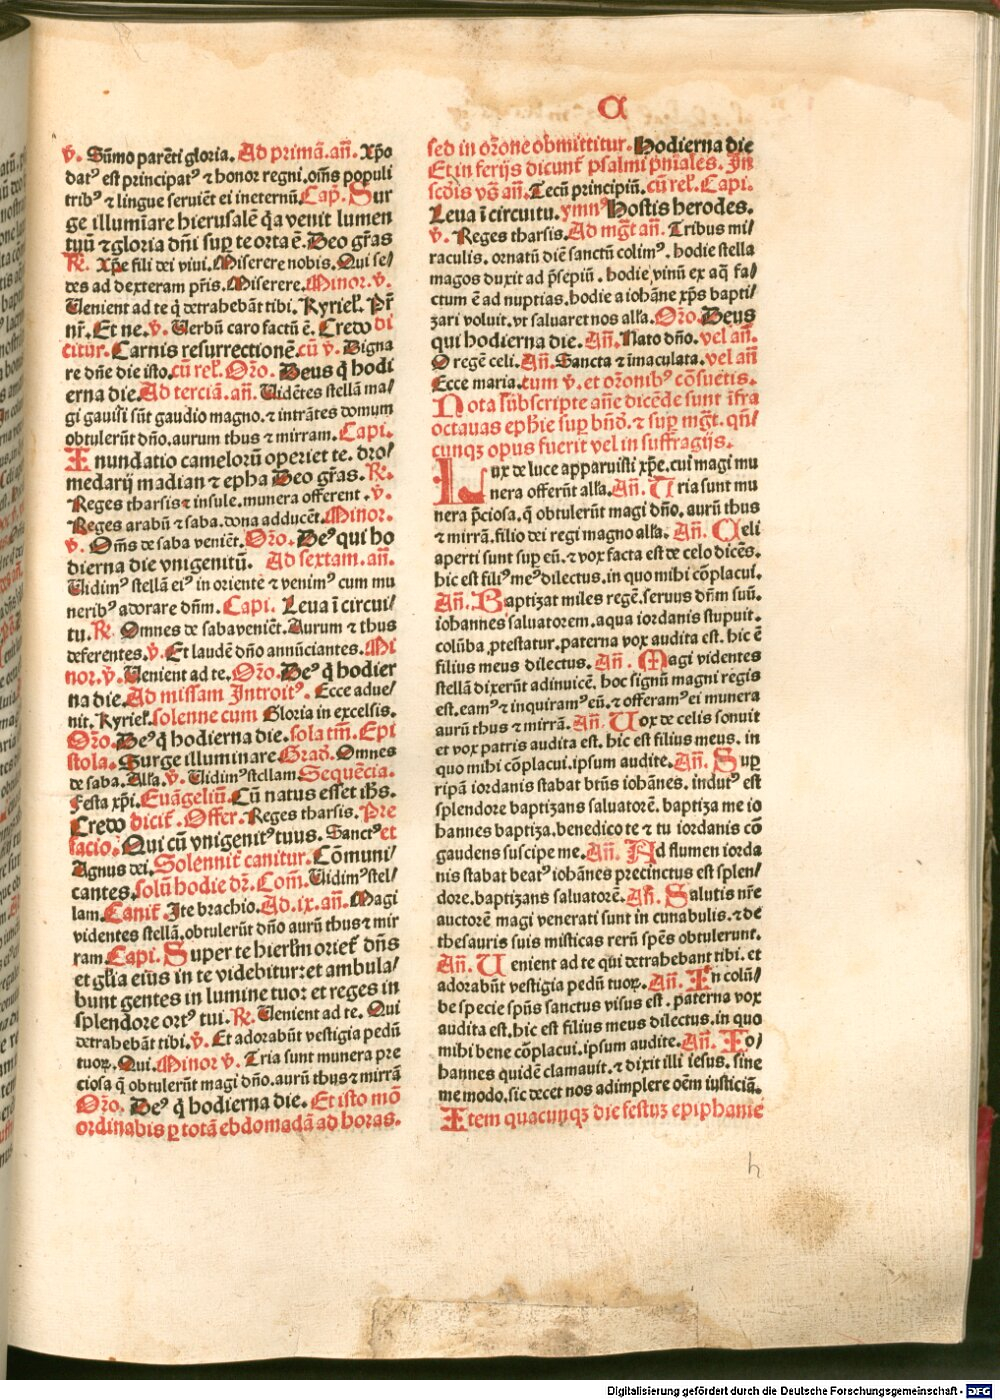 a
v̄. Sūmo parēti gloria. Ad primā. an̄. Xp̄o
datꝰ est principatꝰ ⁊ honor regni. oīs populi
tribꝰ ⁊ lingue seruiēt ei ineternū. Cap̄. Sur
ge illumīare hierusalē q̄a venit lumen
tuū ⁊ gloria dn̄i suꝑ te orta ē. Deo gr̄as
R̄. Xp̄e fili dei viui. Miserere nobis. Qui se/
des ad dexteram pr̄is. Miserere. Minor. v̄.
Uenient ad te q̄ detrahebāt tibi. Kyriel̄. Pr̄
nr̄. Et ne. v̄. Uerbū caro factū ē. Credo di
citur. Carnis resurrectionē. cū v̄. Digna
re dn̄e die isto. cū rel̄. Oro. Deus q̄ hodi
erna die. Ad terciā. an̄. Uidētes stellā ma/
gi gauisi sūt gaudio magno. ⁊ intrātes domum
obtulerūt dn̄o. aurum thus ⁊ mirram. Capi.
Inundatio camelorū operiet te. dro/
medarij madian ⁊ epha Deo gr̄as. R̄.
Reges tharsis ⁊ insule. munera offerent. v̄.
Reges arabū ⁊ saba. dona adducēt. Minor.
v̄. Om̄s de saba veniēt. Oro. Deꝰ qui ho
dierna die vnigenitū. Ad sextam. an̄.
Uidimꝰ stellā eiꝰ in oriente ⁊ venimꝰ cum mu
neribꝰ adorare dn̄m. Capi. Leua ī circui/
tu. R̄. Omnes de saba veniēt. Aurum ⁊ thus
deferentes. v̄. Et laudē dn̄o annūciantes. Mi
nor. v̄. Uenient ad te. Oro. Deꝰ q̄ hodier
na die. Ad missam Introitꝰ. Ecce adue/
nit. Kyriel̄. solenne cum Gloria in excelsis.
Oro. Deꝰ q̄ hodierna die. sola tm̄. Epi
stola. Surge illuminare Grad̄. Omnes
de saba. Alla. v̄. Uidimꝰ stellam. Sequēcia.
Festa xp̄i. Euāgeliū. Cū natus esset ih̄s.
Credo dicit̄. Offer. Reges tharsis. Pre
facio. Qui cū vnigenitꝰ tuus. Sanctꝰ et
Agnus dei. Solennit̄ canitur. Cōmuni/
cantes. solū hodie dr̄. Com̄. Uidimꝰ stel/
lam. Canit̄. Ite brachio. Ad. ix. an̄. Magi
videntes stellā. obtulerūt dn̄o aurū thus ⁊ mir
ram. Capi. Super te hierl̄m oriet̄ dn̄s
et gl̄ia eiꝰ in te videbitur: et ambula/
bunt gentes in lumine tuo: et reges in
splendore ortꝰ tui. R̄. Uenient ad te. Qui
detrahebāt tibi. v̄. Et adorabūt vestigia pedū
tuoꝝ. Qui. Minor v̄. Tria sunt munera pre
ciosa q̄ obtulerūt magi dn̄o. aurū thus ⁊ mirrā
Oro. Deꝰ q̄ hodierna die. Et isto mō
ordinabis ꝑ totā ebdomadā ad horas.
sed in or̄one obmittitur. Hodierna die
Et in ferijs dicunt̄ psalmi p̄niales. In
scd̄is vꝭ an̄. Tecū principiū. cū rel̄. Capi.
Leua ī circuitu. ymnꝰ Hostis herodes.
v̄. Reges tharsis. Ad mgt̄ an̄. Tribus mi/
raculis. ornatū diē sanctū colimꝰ. hodie stella
magos duxit ad p̄sepiū. hodie vinū ex aq̄ fa/
ctum ē ad nuptias. hodie a iohāne xp̄s bapti/
zari voluit. vt saluaret nos alla. Oro. Deus
qui hodierna die. An̄. Nato dn̄o. vel an̄.
O regē celi. An̄. Sancta ⁊ īmaculata. vel an̄
Ecce maria. cum v̄. et or̄onibꝰ cōsuetis.
Nota sūbscripte an̄e dicēde sunt īfra
octauas eph̄ie suꝑ bn̄d̄. ⁊ suꝑ mgt̄. qn̄/
cunqꝫ opus fuerit vel in suffragijs.
Lux de luce apparuisti xp̄e. cui magi mu
nera offerūt alla. An̄. Tria sunt mu
nera p̄ciosa. q̄ obtulerūt magi dn̄o. aurū thus
⁊ mirrā. filio dei regi magno alla. An̄. Celi
aperti sunt suꝑ eū. ⁊ vox facta est de celo dicēs.
hic est filiꝰ meꝰ dilectus. in quo mihi cōplacui.
An̄. Baptizat miles regē. seruus dn̄m suū.
iohannes saluatorem. aqua iordanis stupuit.
colūba ꝓtestatur. paterna vox audita est. hic ē
filius meus dilectus. An̄. Magi videntes
stellā dixerūt adinuicē. hoc signū magni regis
est. eamꝰ ⁊ inquiramꝰ eū. ⁊ offeramꝰ ei munera
aurū thus ⁊ mirrā. An̄. Uox de celis sonuit
et vox patris audita est. hic est filius meus. in
quo mihi cōplacui. ipsum audite. An̄. Suꝑ
ripā iordanis stabat btn̄s iohānes. indutꝰ est
splendore baptizans saluatorē. baptiza me io
hannes baptiza. benedico te ⁊ tu iordanis cō
gaudens suscipe me. An̄. Ad flumen iorda
nis stabat beatꝰ iohānes precinctus est splen/
dore. baptizans saluatorē. An̄. Salutis nr̄e
auctorē magi venerati sunt in cunabulis. ⁊ de
thesauris suis misticas rerū spēs obtulerunt.
An̄. Uenient ad te qui detrahebant tibi. et
adorabūt vestigia pedū tuoꝝ. An̄. In colū/
be specie sp̄ūs sanctus visus est. paterna vox
audita est. hic est filius meus dilectus. in quo
mihi bene cōplacui. ipsum audite. An̄. Io/
hannes quidē clamauit. ⁊ dixit illi iesus. sine
me modo. sic decet nos adimplere oēm iusticiā.
Item quacunqꝫ die festuꝫ epiphanie
h
Digitalisierung gefördert durch die Deutsche Forschungsgemeinschaft - DFG